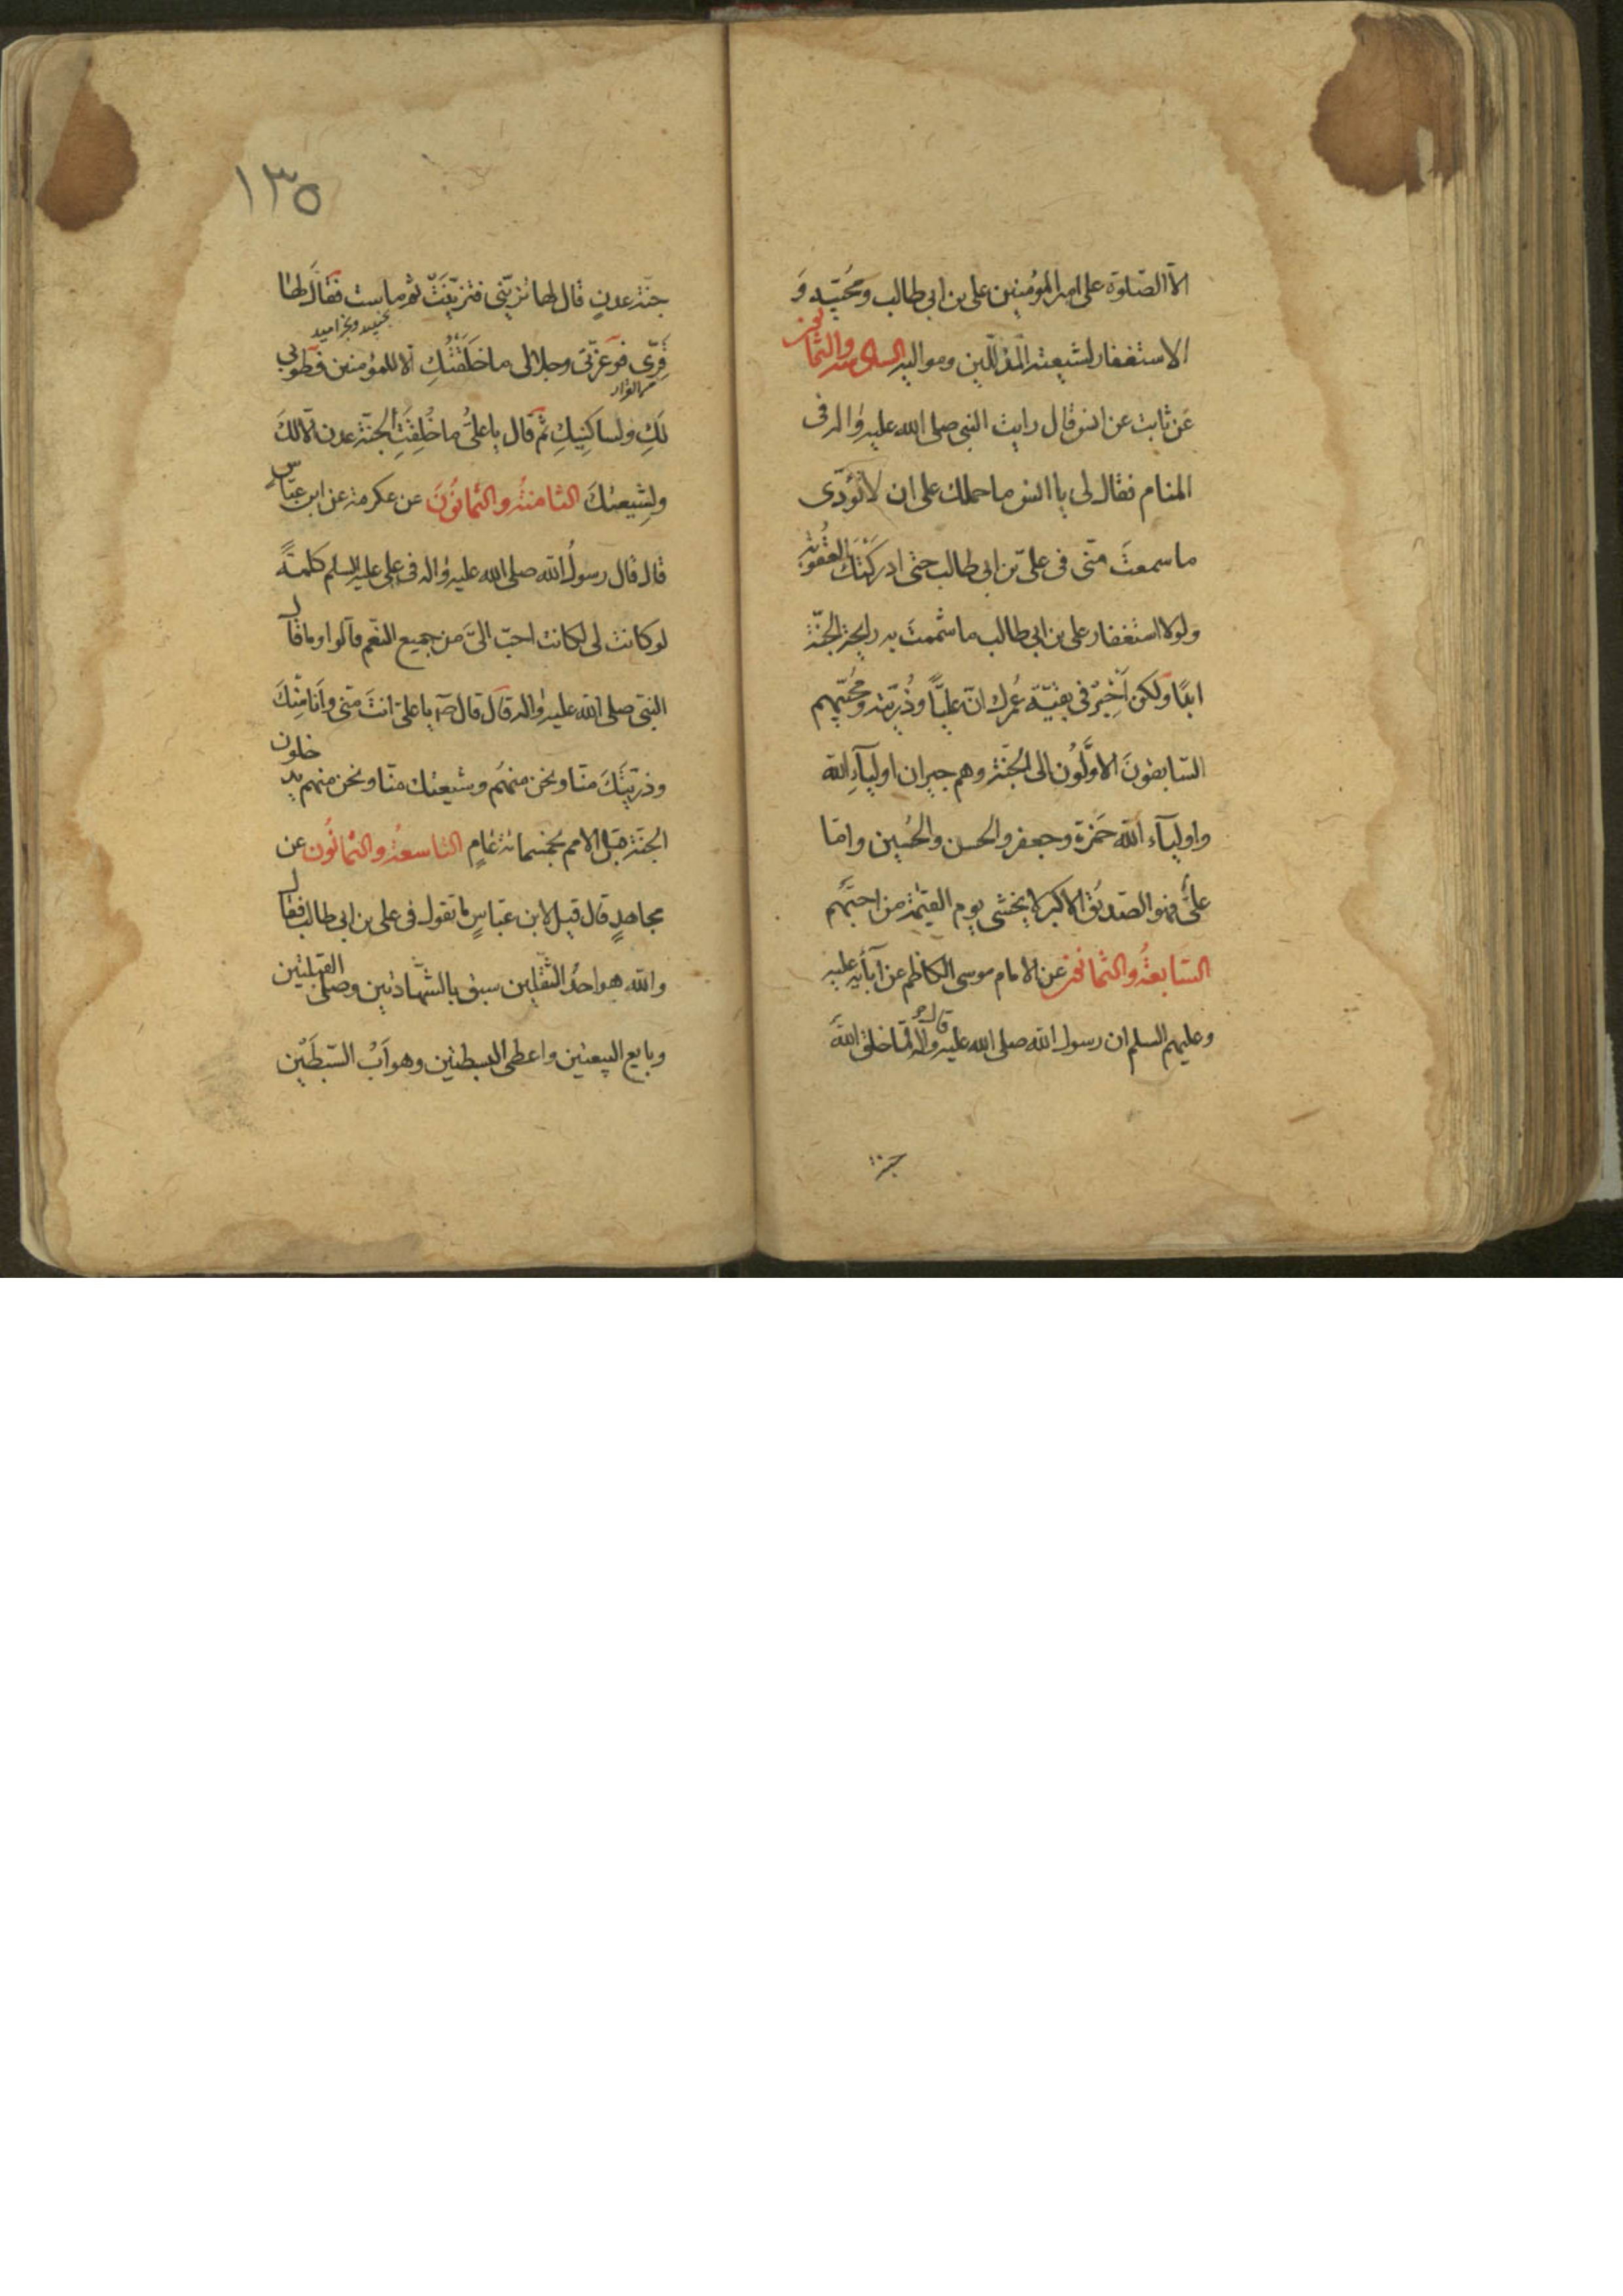 الا الصّلوة على امير المؤمنين على بن ابى طالب ومُحبّيه وَ
الاستغفار لشيعته المذنبين ومواليه السادسة والثمانون
عَن ثابت عن انس قال رايت النبى صلى الله عليه واله فى
المنام فقال لى يا انس ما حملك على ان لا تُؤدّى
ما سمعتَ منّى فى علىّ بن ابى طالب حتى ادركَتْكَ العُقُوبة
ولولا استغفار على بن ابى طالب ما شممتَ به رايحة الجنّة
ابدًا ولكن اَخْبِرْ فى بقيّة عُمرك انّ عليّاً وذُرّيّته ومُحبّيهم
السّابقونَ الاوَّلُون الى الجنّة وهم جيران اوليآءِ الله
واوليآء الله حَمْزة وجعفر والحسن والحُسين وامّا
علىٌّ فهو الصّديقُ الاكبر لا يخشى يوم القيمة من احبَّهُم
السّابعةُ والثمانون عن الامام موسى الكاظم عن آبائه عليه
وعليهم السلم ان رسول الله صلى الله عليه واله قال لمّا خلق اللهَ
جنة
١٣٥
جنّة عدنٍ قال لها تزيّنى فتزيّنَتْ ثم ماست فقالَ لها
بجنبيد وبخراميد
قِرّى فوَعزّتى وجلالى ما خَلَقْتُكِ الا للمؤمنين فطوبى
من القرار
لَكِ ولساكِنيكِ ثم قال يا علىُّ ما خُلِقَتِ الجنّة عدن الّا لكَ
ولِشيعتكَ الثامنةُ والثمانُونَ عن عكرمة عن ابن عبّاسٍ
قال قال رسولُ الله صلى الله عليه واله فى على عليه السلم كلمةً
لو كانت لى لكانت احبّ الىَّ من جميع النعم قالوا وما قال
النبّى صلى الله عليه واله قال قال صآ يا علىّ انتَ منّى وأنَا مِنْكَ
وذرّيّتكَ منّا ونحن منهُم وشيعتك منّا ونحن منهم يدخلون
الجنّة قبل الامم بخمسمائة عامٍ التاسعةُ والثمانُون عن
مجاهدٍ قال قيل لابن عبّاسٍ ما تقول فى على بن ابى طالب فقال
والله هو احدُ الثقلين سبق بالشّهادتين وصلّى القبلتين
وبايع البيعتين واعطى البسطتين وهو اَبُ السّبطَيْن